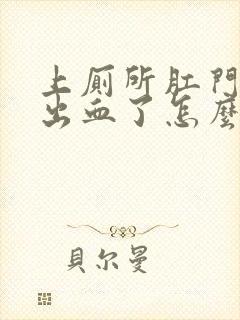 上厠所肛門
出血了怎麼
貝尔曼